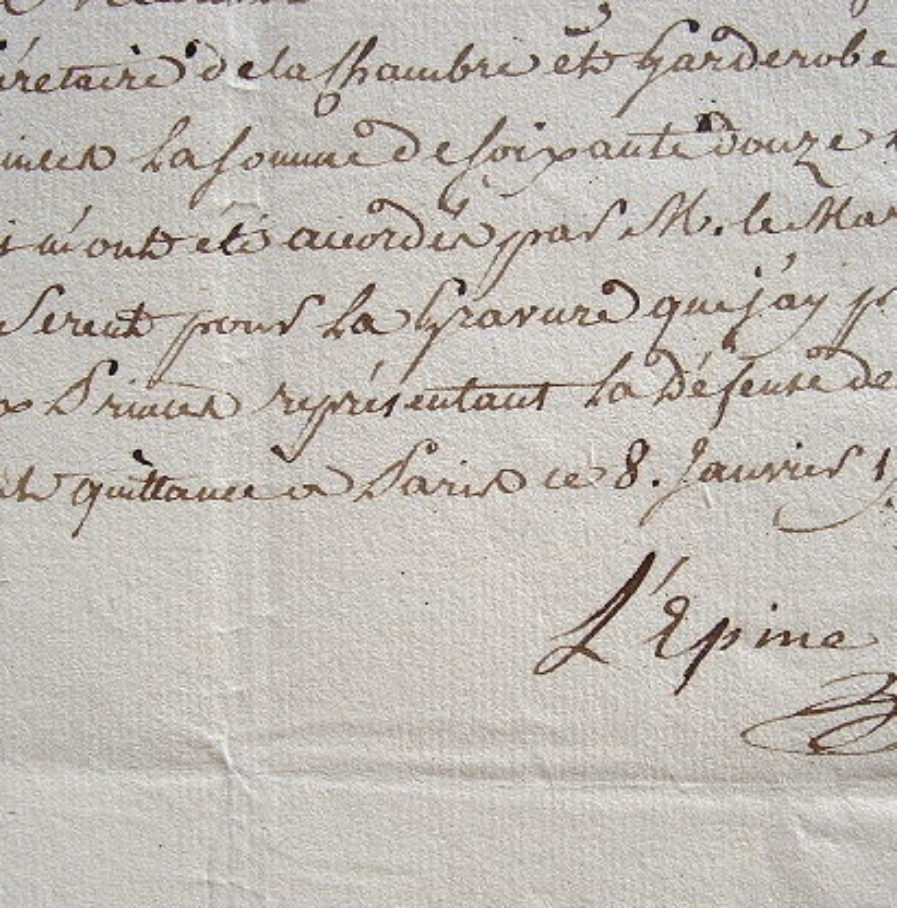 crétaire de la Chambre et Garderobe
inces La somme de soixante douze
m'ont été accordés par M. le Mar
Serent pour la Gravure que j'ay p
x Princes représentant La Défense de
quittance a Paris ce 8. Janvier 1
L'Epine